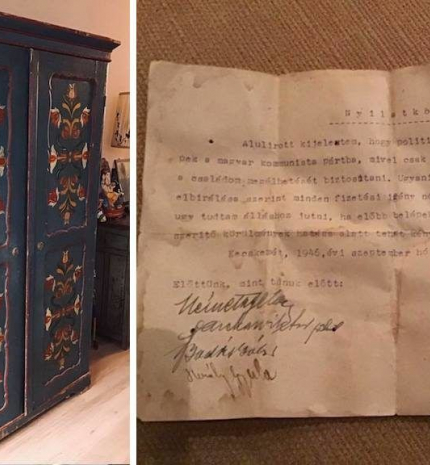 Nyilatko
Alulirott kijelentem, hogy politi
nek a magyar kommunista pártba, mivel csak
a családom megélhetését biztositani. Ugyani
elbirálása szerint minden fizetési igény né
ugy tudtam álláshoz jutni, ha előbb belépek
szeritő körülmények hatása alatt tehát kény
Kecskemét, 1946. évi szeptember hó
Előttünk, mint tanuk előtt:
Király Gyula